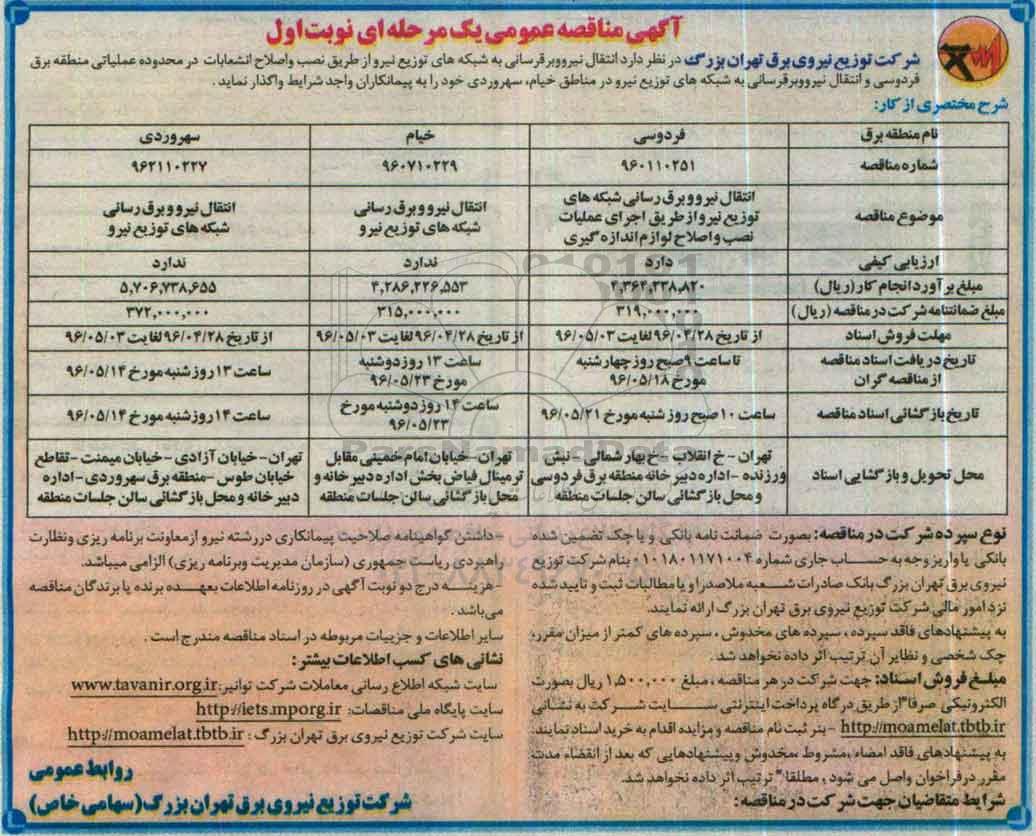 آگهی مناقصه عمومی یک مرحله ای نوبت اول
شرکت توزیع نیروی برق تهران بزرگ در نظر دارد انتقال نیرووبرقرسانی به شبکه های توزیع نیرو از طریق نصب واصلاح انشعابات در محدوده عملیاتی منطقه برق
فردوسی و انتقال نیرووبرقرسانی به شبکه های توزیع نیرو در مناطق خیام، سهروردی خود را به پیمانکاران واجد شرایط واگذار نماید.
شرح مختصری از کار:
نام منطقه برق فردوسی خیام سهروردی
شماره مناقصه ۹۶۰۱۱۰۲۵۱ ۹۶۰۷۱۰۲۲۹ ۹۶۲۱۱۰۲۲۷
موضوع مناقصه
انتقال نیرو و برق رسانی شبکه های
توزیع نیرو از طریق اجرای عملیات
نصب و اصلاح لوازم اندازه گیری
انتقال نیرو و برق رسانی
شبکه های توزیع نیرو
انتقال نیرو و برق رسانی
شبکه های توزیع نیرو
ارزیابی کیفی دارد ندارد ندارد
مبلغ برآورد انجام کار (ریال) ۴,۲۸۶,۲۲۶,۵۵۳ ۵,۷۰۶,۷۳۸,۶۵۵
مبلغ ضمانتنامه شرکت در مناقصه (ریال) ۳۱۹,۰۰۰,۰۰۰ ۳۱۵,۰۰۰,۰۰۰ ۳۷۲,۰۰۰,۰۰۰
مهلت فروش اسناد از تاریخ ۹۶/۰۴/۲۸ لغایت ۹۶/۰۵/۰۳ از تاریخ ۹۶/۰۴/۲۸ لغایت ۹۶/۰۵/۰۳ از تاریخ ۹۶/۰۴/۲۸ لغایت ۹۶/۰۵/۰۳
تاریخ دریافت اسناد مناقصه
از مناقصه گران
تا ساعت ۹صبح روز چهارشنبه
مورخ ۹۶/۰۵/۱۸
ساعت ۱۳ روز دوشنبه
مورخ ۹۶/۰۵/۲۳
ساعت ۱۳ روز شنبه مورخ ۹۶/۰۵/۱۴
تاریخ بازگشائی اسناد مناقصه
ساعت ۱۰ صبح روز شنبه مورخ ۹۶/۰۵/۲۱
ساعت ۱۴ روز دوشنبه مورخ
۹۶/۰۵/۲۳
ساعت ۱۴ روزشنبه مورخ ۹۶/۰۵/۱۴
محل تحویل و بازگشایی اسناد
تهران - خ انقلاب - خ بهار شمالی - نبش
ورزنده - اداره دبیر خانه منطقه برق فردوسی
و محل بازگشائی سالن جلسات منطقه
تهران - خیابان امام خمینی مقابل
ترمینال فیاض بخش اداره دبیر خانه و
محل بازگشائی سالن جلسات منطقه
تهران - خیابان آزادی - خیابان میمنت - تقاطع
خیابان طوس - منطقه برق سهروردی - اداره
دبیر خانه و محل بازگشائی سالن جلسات منطقه
نوع سپرده شرکت در مناقصه: بصورت ضمانت نامه بانکی و یا چک تضمین شده
بانکی یا واریز وجه به حساب جاری شماره ۰۱۰۱۸۰۱۱۷۱۰۰۴ بنام شرکت توزیع
نیروی برق تهران بزرگ بانک صادرات شعبه ملاصدرا و یا مطالبات ثبت و تایید شده
نزد امور مالی شرکت توزیع نیروی برق تهران بزرگ ارائه نمایند.
به پیشنهادهای فاقد سپرده، سپرده های مخدوش، سپرده های کمتر از میزان مقرر،
چک شخصی و نظایر آن ترتیب اثر داده نخواهد شد.
مبلغ فروش اسناد: جهت شرکت در هر مناقصه، مبلغ ۱,۵۰۰,۰۰۰ ریال بصورت
الکترونیکی صرفا" از طریق درگاه پرداخت اینترنتی سایت شرکت به نشانی
http://moamelat.tbtb.ir - بنر ثبت نام مناقصه و مزایده اقدام به خرید اسناد نمایند.
به پیشنهادهای فاقد امضاء ،مشروط ،مخدوش و پیشنهادهایی که بعد از انقضاء مدت
مقرر در فراخوان واصل می شود، مطلقا" ترتیب اثر داده نخواهد شد.
شرایط متقاضیان جهت شرکت در مناقصه:
-داشتن گواهینامه صلاحیت پیمانکاری در رشته نیرو از معاونت برنامه ریزی ونظارت
راهبردی ریاست جمهوری (سازمان مدیریت وبرنامه ریزی) الزامی میباشد.
-هزینه درج دو نوبت آگهی در روزنامه اطلاعات بعهده برنده یا برندگان مناقصه
می باشد.
سایر اطلاعات و جزییات مربوطه در اسناد مناقصه مندرج است.
نشانی های کسب اطلاعات بیشتر:
سایت شبکه اطلاع رسانی معاملات شرکت توانیر: www.tavanir.org.ir
سایت پایگاه ملی مناقصات: http://iets.mporg.ir
سایت شرکت توزیع نیروی برق تهران بزرگ: http://moamelat.tbtb.ir
روابط عمومی
شرکت توزیع نیروی برق تهران بزرگ (سهامی خاص)